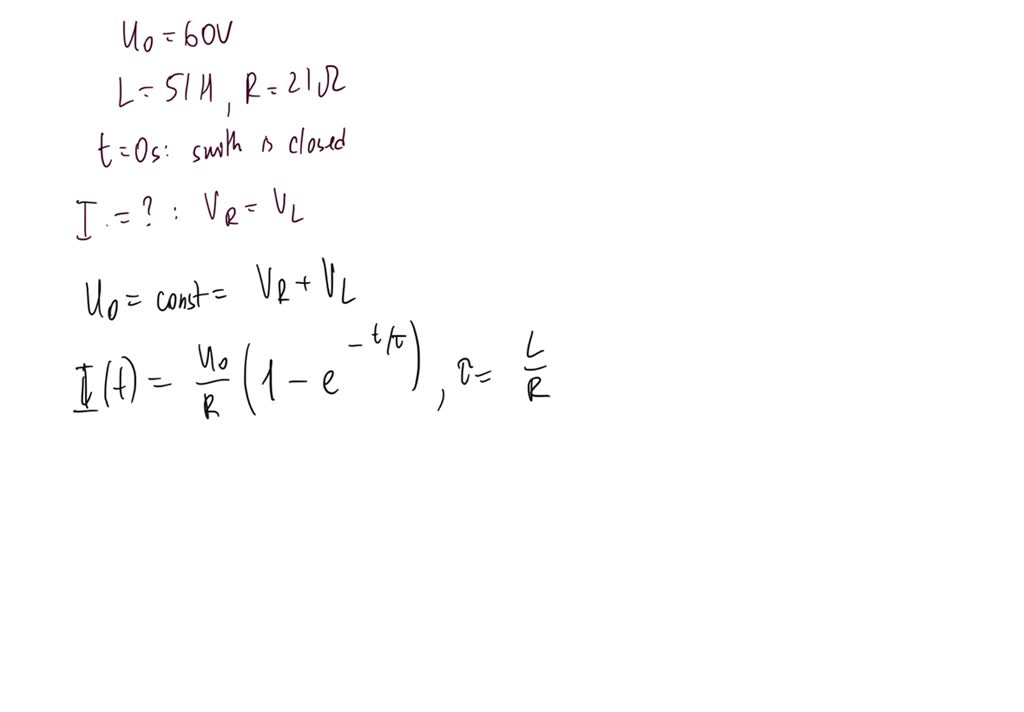 U₀ = 60V
L = 51H, R = 21Ω
t = 0s: swith is closed
I = ? : V_R = V_L
U₀ = const = V_R + V_L
I(t) = U₀/R (1 - e^(-t/τ)), τ = L/R